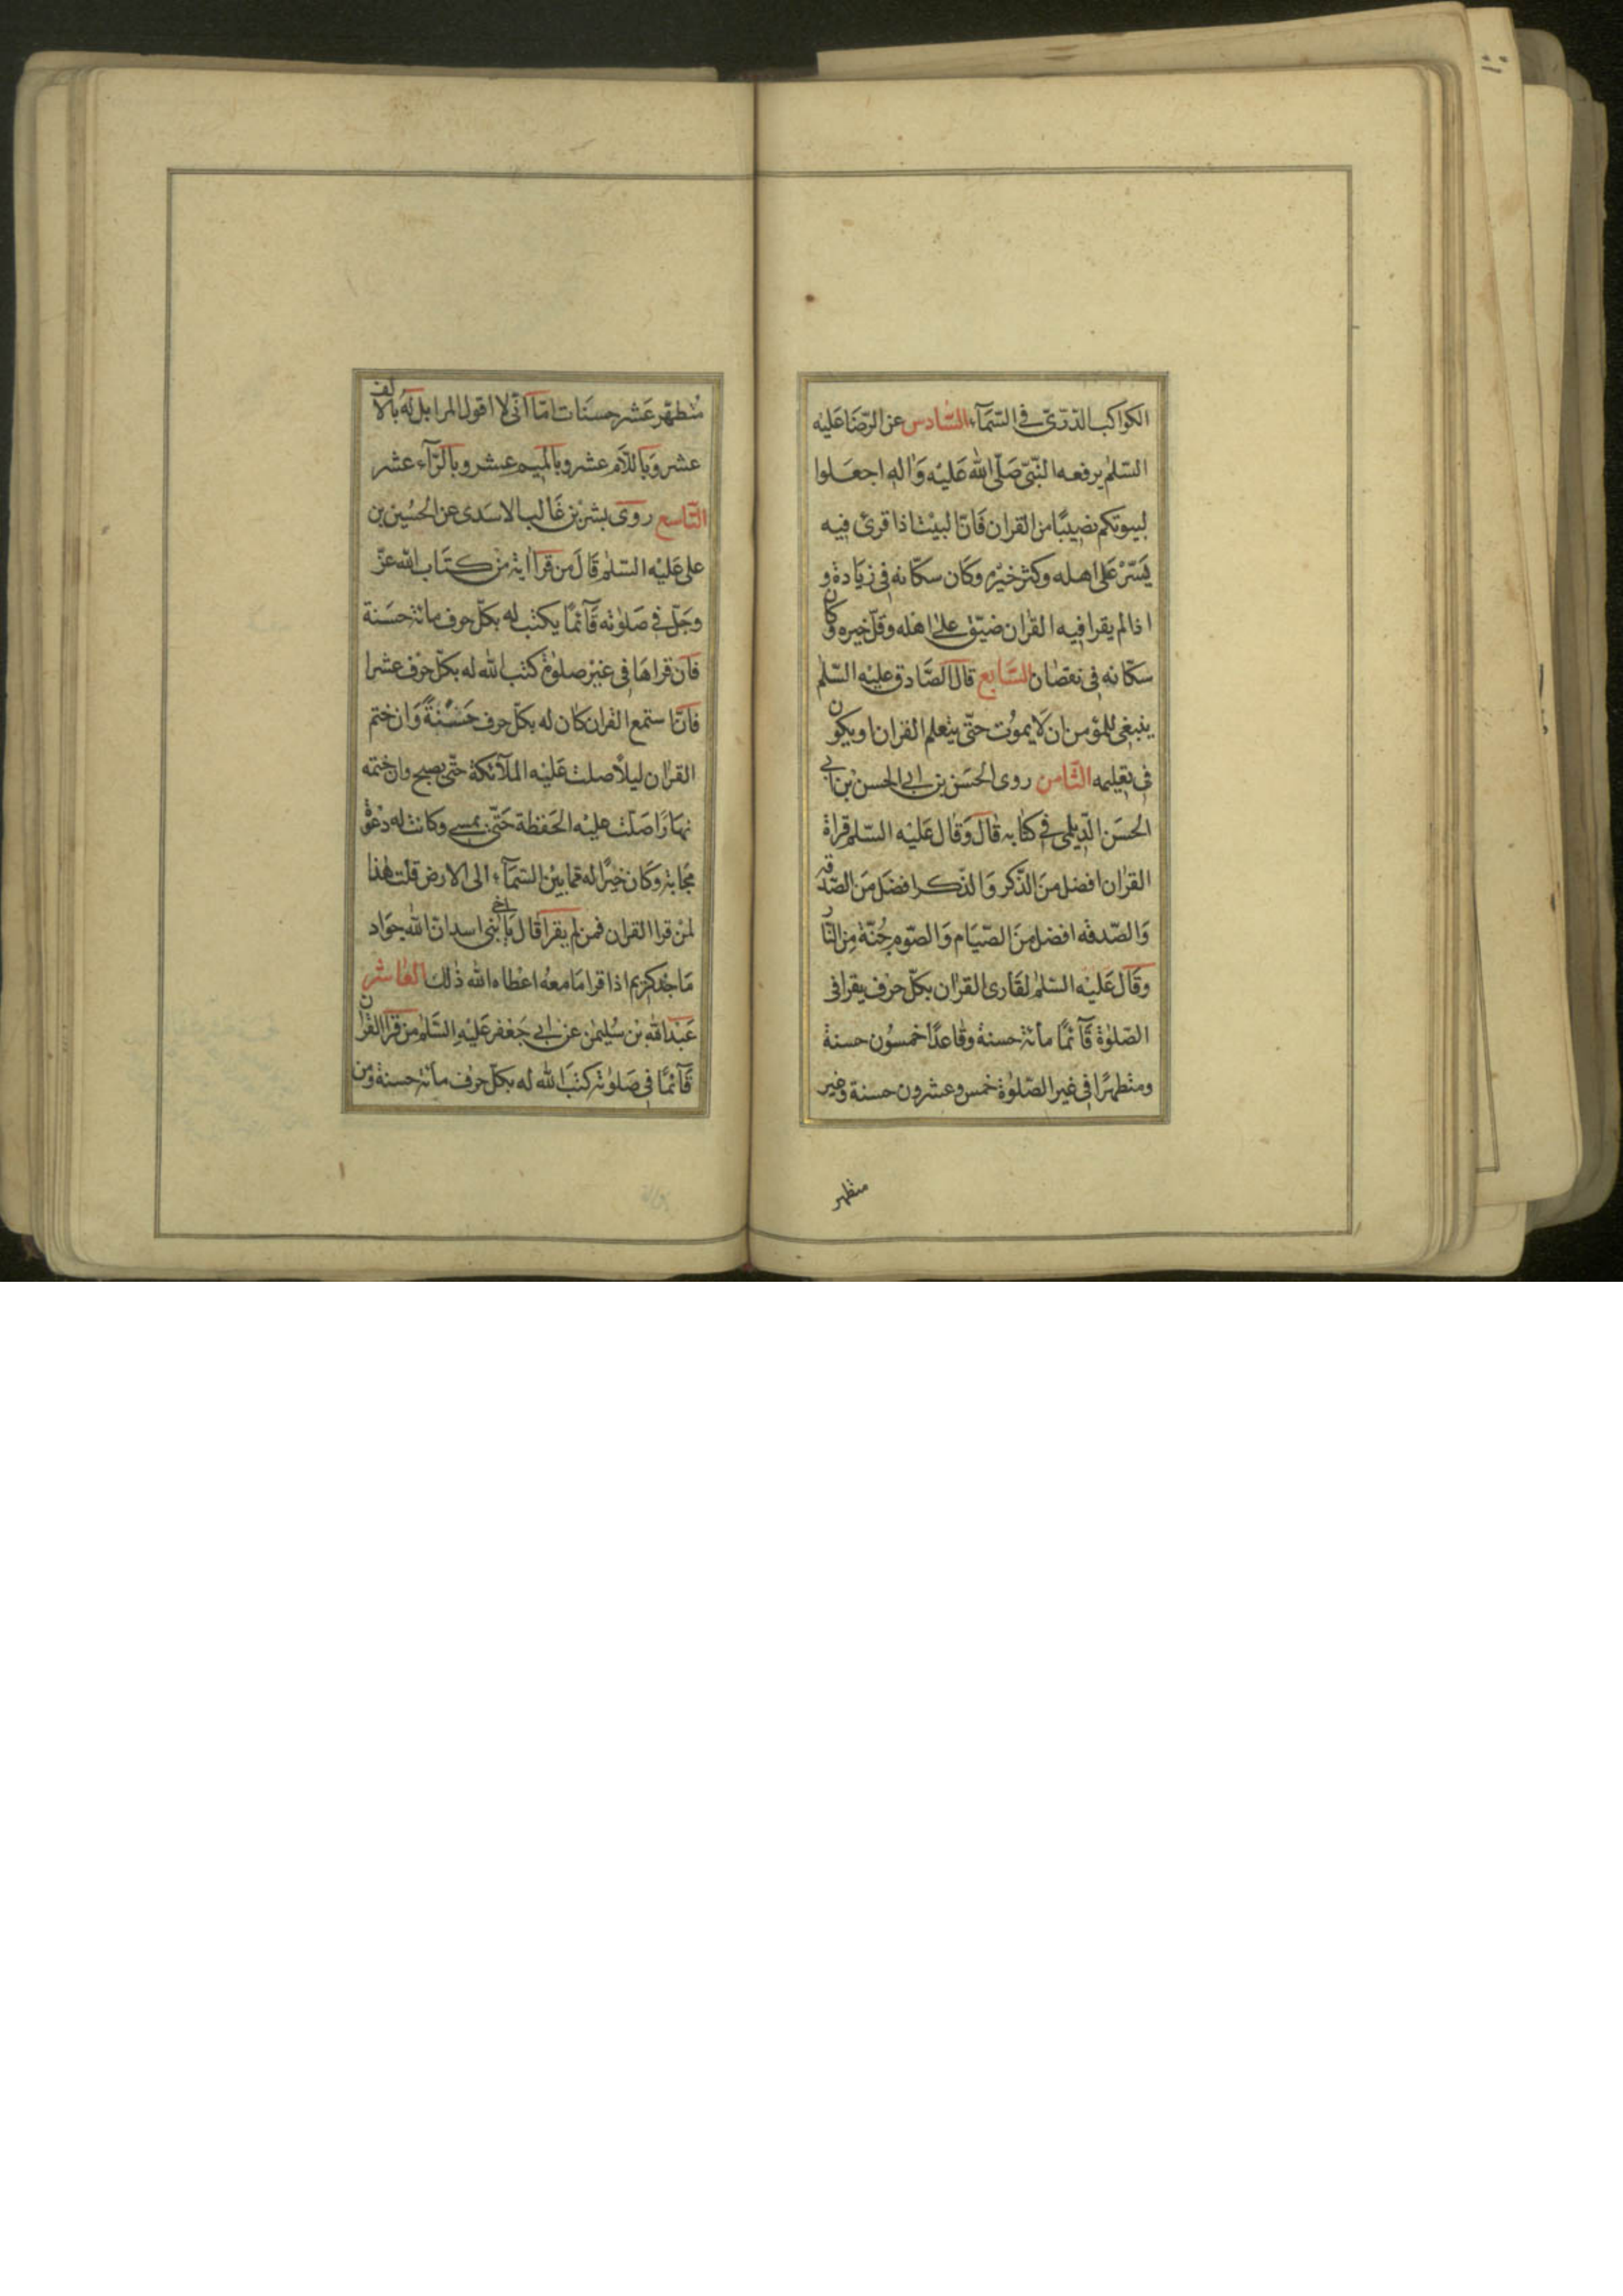 الكواكب الدّرّى فى السّمآء السّادس عن الرّضا عليه
السّلم يرفعه النّبىّ صلّى الله عليه واله اجعلوا
لبيوتكم نصيبًا من القران فانّ البيت اذا قرئ فيه
يسّر على اهله وكثر خيره وكان سكّانه فى زيادة و
اذا لم يقرا فيه القران ضيّق على اهله وقلّ خيره وكان
سكّانه فى نقصان السّابع قال الصّادق عليه السّلم
ينبغى للمؤمن ان لا يموت حتّى يتعلم القران او يكون
فى تعليمه الثّامن روى الحسن بن ابى الحسن بن ابى
الحسن الدّيلمى فى كتابه قال وقال عليه السّلم قراة
القران افضل من الذّكر والذّكر افضل من الصّدقه
والصّدقه افضل من الصّيام والصّوم جُنّة من النّار
وقال عليه السّلم لقارى القران بكلّ حرف يقرا فى
الصّلوة قآئمًا مائة حسنة وقاعدًا خمسون حسنة
ومتطهرًا فى غير الصّلوة خمس وعشرون حسنة وغير
متطهر
متطهّر عشر حسنات امّا انّى لا اقول المرا بل له بالالف
عشر وباللّام عشر وبالميم عشر وبالرّآء عشر
التّاسع روى بشر بن غالب الاسدى عن الحسين بن
على عليه السّلم قال من قرا اية من كتاب الله عزّ
وجلّ فى صلوته قآئمًا يكتب له بكلّ حرف مائة حسنة
فان قراها فى غير صلوة كتب الله له بكلّ حرف عشرا
فان استمع القران كان له بكلّ حرف حسنةً وان ختم
القران ليلًا صلت عليه الملآئكة حتّى يصبح وان ختمه
نهارا صلّت عليه الحفظة حتّى يمسى وكانت له دعوة
مجابة وكان خيرًا له مما بين السّمآء الى الارض قلت هذا
لمن قرا القران فمن لم يقرا قال يا اخى بنى اسد انّ الله جواد
ماجد كريم اذا قرا ما معه اعطاه الله ذلك العاشر
عبد الله بن سليمن عن ابى جعفر عليه السّلم من قرا القران
قآئمًا فى صلوته كتب الله له بكلّ حرف مائة حسنة ومن